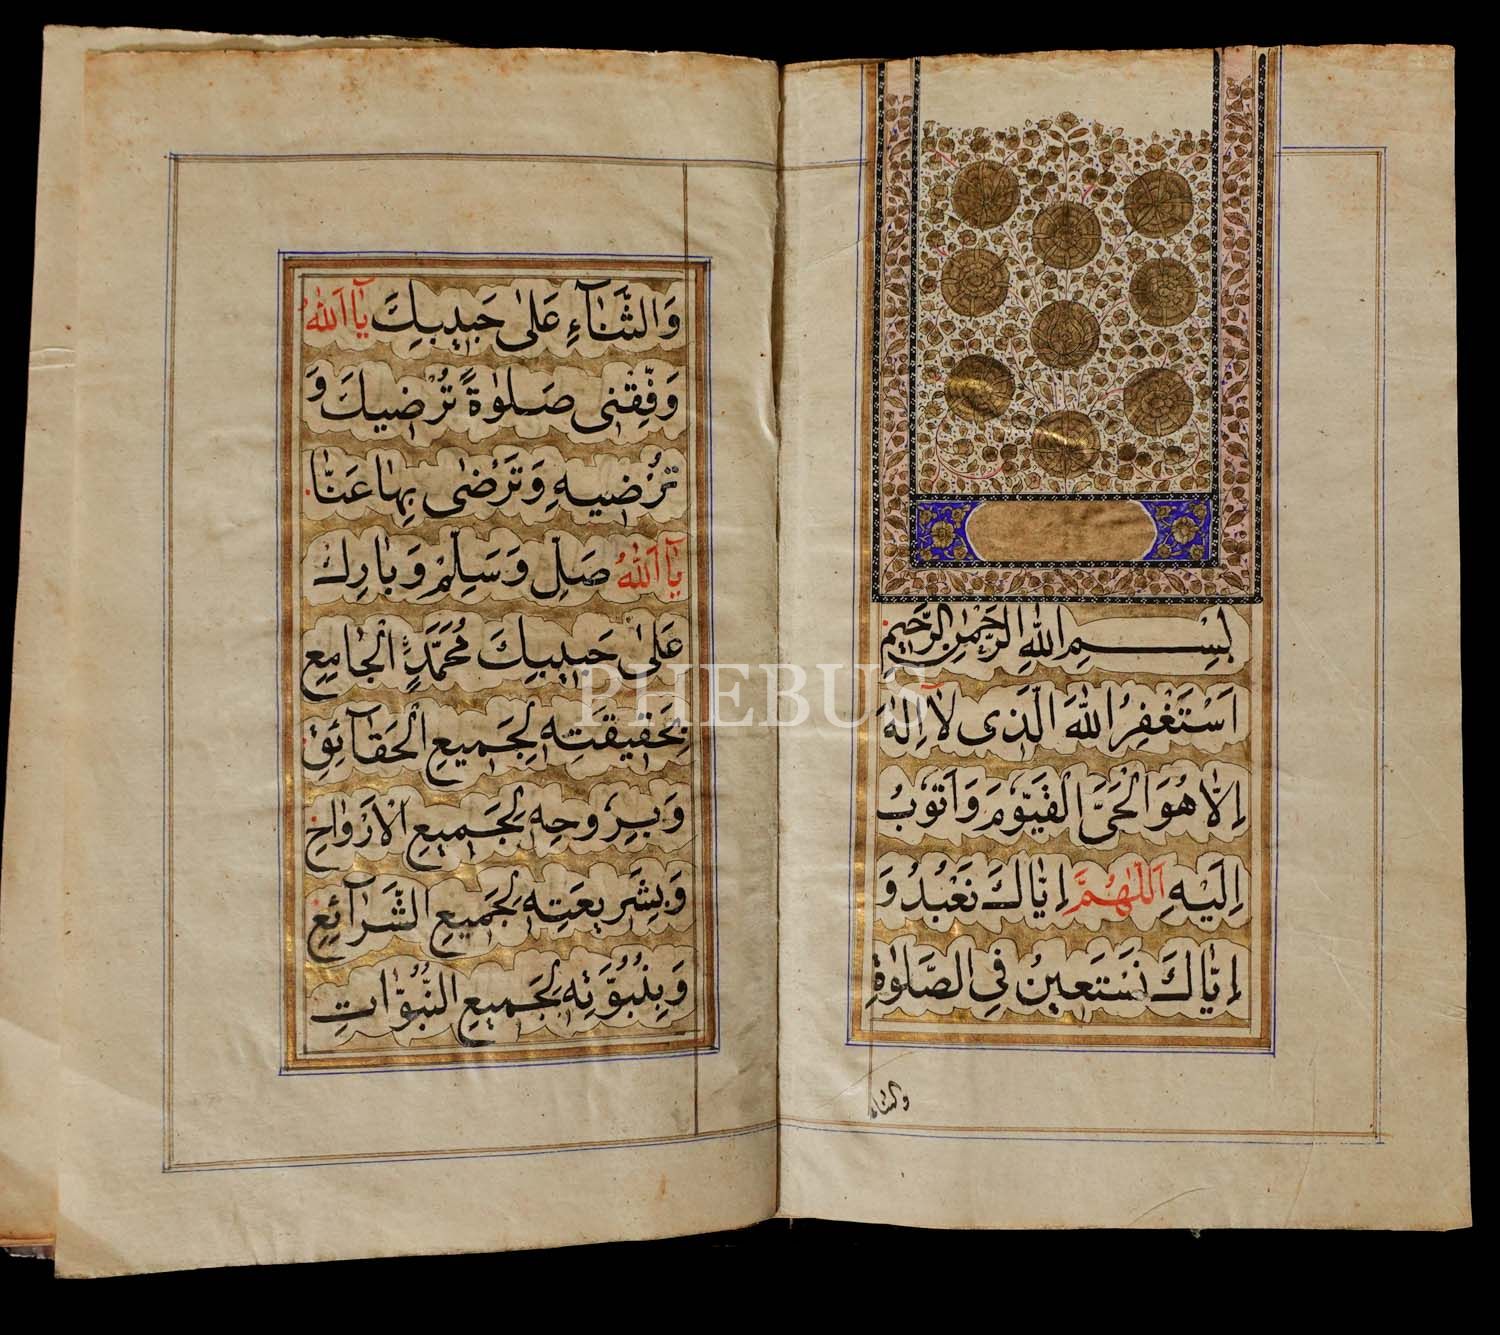 بِسْمِ اللهِ الرَّحْمٰنِ الرَّحِيْمِ
اَسْتَغْفِرُ اللهَ الَّذِى لَآ اِلٰهَ
اِلَّا هُوَ الْحَىَّ الْقَيُّوْمَ وَاَتُوْبُ
اِلَيْهِ اَللّٰهُمَّ اِيَّاكَ نَعْبُدُ وَ
اِيَّاكَ نَسْتَعِيْنُ فِى الصَّلٰوةِ
والثناء
وَالثَّنَآءِ عَلٰى حَبِيْبِكَ يَآ اَللهُ
وَفِّقْنِى صَلٰوةً تُرْضِيْكَ وَ
تُرْضِيْهِ وَتَرْضٰى بِهَا عَنَّا
يَآ اَللهُ صَلِّ وَسَلِّمْ وَبَارِكْ
عَلٰى حَبِيْبِكَ مُحَمَّدٍ الْجَامِعِ
بِحَقِيْقَتِهٖ لِجَمِيْعِ الْحَقَآئِقِ
وَبِرُوْحِهٖ لِجَمِيْعِ الْاَرْوَاحِ
وَبِشَرِيْعَتِهٖ لِجَمِيْعِ الشَّرَآئِعِ
وَبِنُبُوَّتِهٖ لِجَمِيْعِ النُّبُوَّاتِ
PHEBUS